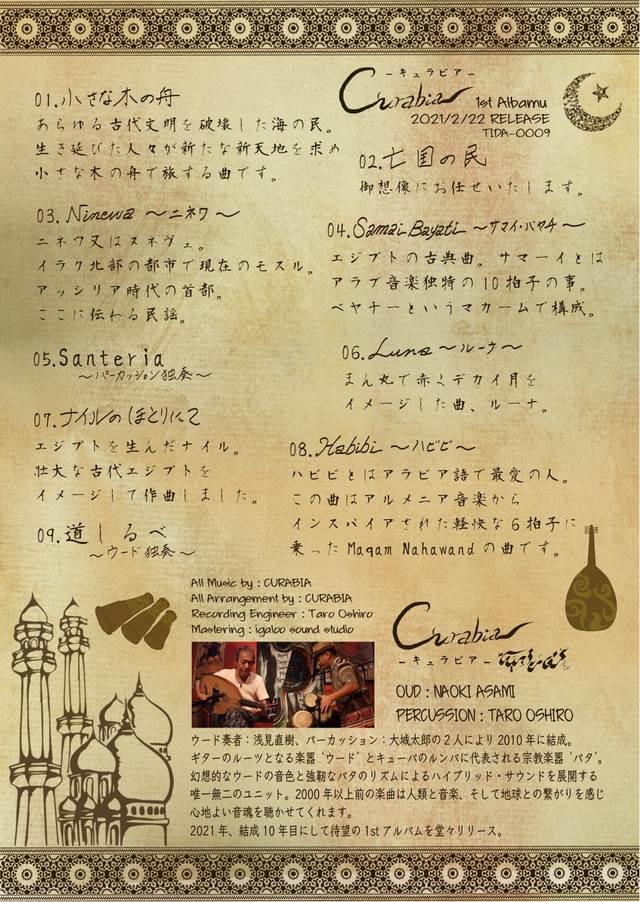 01.小さな木の舟
あらゆる古代文明を破壊した海の民。
生き延びた人々が新たな新天地を求め
小さな木の舟で旅する曲です。
－キュラビア－
Curabia 1st Albamu
2021/2/22 RELEASE
TIDA-0009
02.亡国の民
御想像にお任せいたします。
03.Ninewa ～ニネワ～
ニネワ又はヌネヴェ。
イラク北部の都市で現在のモスル。
アッシリア時代の首都。
ここに伝わる民謡。
04.Samai Bayati ～サマイ・バヤチ～
エジプトの古典曲。サマーイとは
アラブ音楽独特の10拍子の事。
ベヤナーというマカームで構成。
05.Santeria
～パーカッション独奏～
06.Luna ～ルーナ～
まん丸で赤くデカイ月を
イメージした曲、ルーナ。
07.ナイルのほとりにて
エジプトを生んだナイル。
壮大な古代エジプトを
イメージして作曲しました。
08.Habibi ～ハビビ～
ハビビとはアラビア語で最愛の人。
この曲はアルメニア音楽から
インスパイアされた軽快な6拍子に
乗ったMaqam Nahawandの曲です。
09.道しるべ
～ウード独奏～
All Music by : CURABIA
All Arrangement by : CURABIA
Recording Engineer : Taro Oshiro
Mastering : igaloo sound studio
Curabia
－キュラビア－
OUD : NAOKI ASAMI
PERCUSSION : TARO OSHIRO
ウード奏者：浅見直樹、パーカッション：大城太郎の2人により2010年に結成。
ギターのルーツとなる楽器‘ウード’とキューバのルンバに代表される宗教楽器‘バタ’。
幻想的なウードの音色と強靭なバタのリズムによるハイブリッド・サウンドを展開する
唯一無二のユニット。2000年以上前の楽曲は人類と音楽、そして地球との繋がりを感じ
心地よい音魂を聴かせてくれます。
2021年、結成10年目にして待望の1stアルバムを堂々リリース。